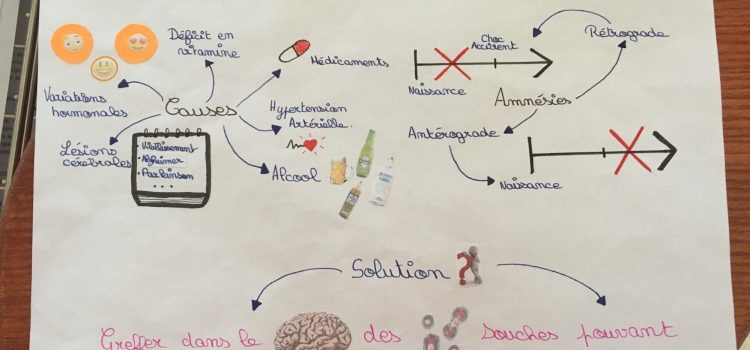 Déficit en
vitamine
Médicaments
Variations
hormonales
Causes
Hypertension
Artérielle.
Lésions
cérébrales
Vieillissement
Alzheimer
Parkinson
...
Alcool
Rétrograde
Choc
Accident
Naissance
Amnésies
Antérograde
Naissance
Solution
?
Greffer dans le des souches pouvant